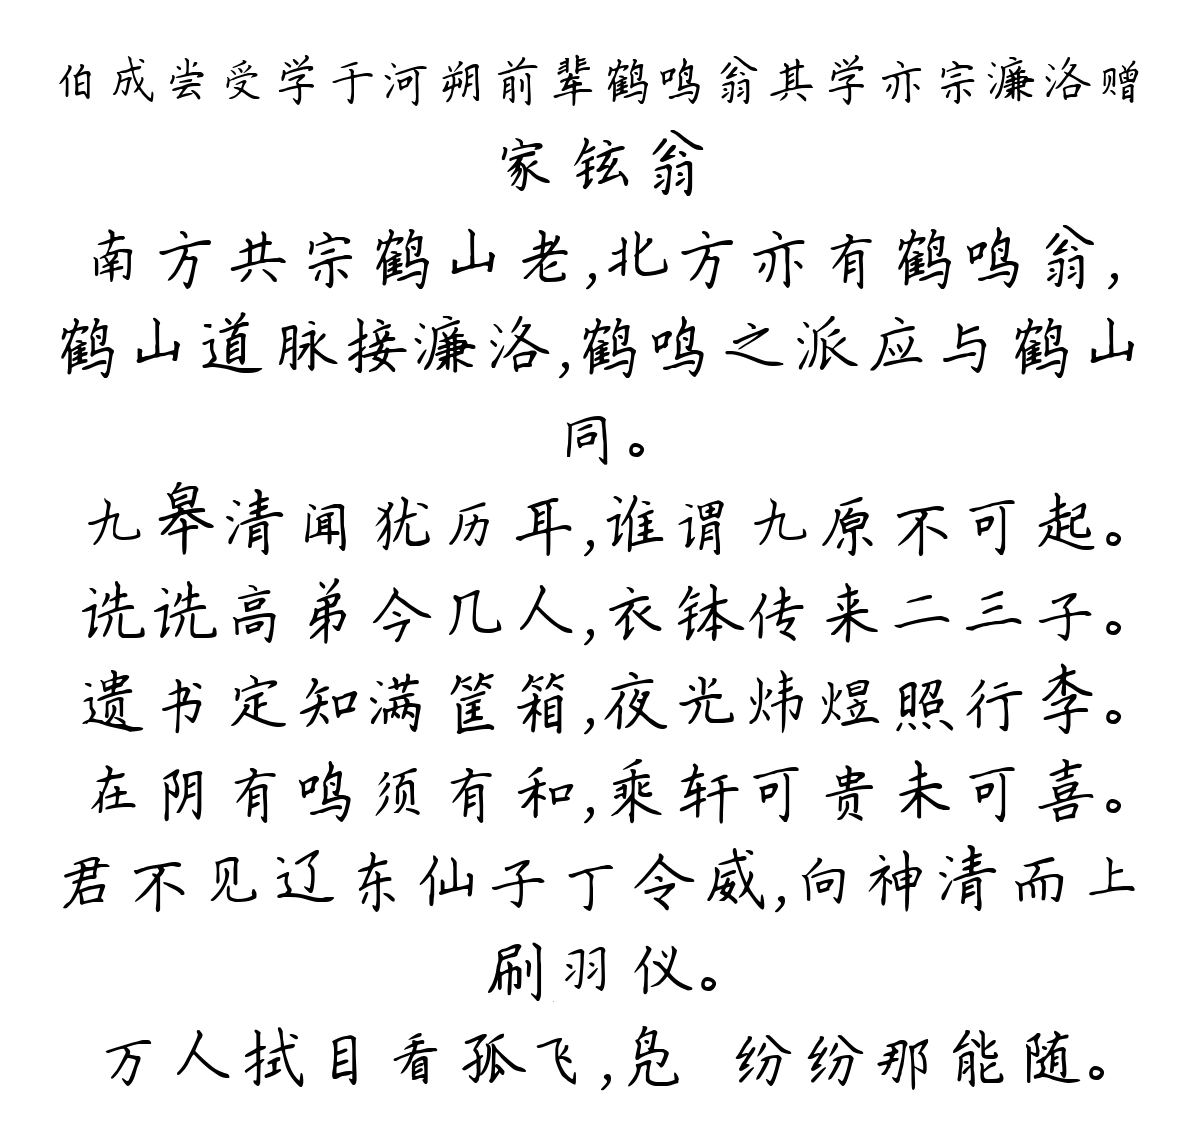 伯成尝受学于河朔前辈鹤鸣翁其学亦宗濂洛赠
家铉翁
南方共宗鹤山老,北方亦有鹤鸣翁,
鹤山道脉接濂洛,鹤鸣之派应与鹤山
同。
九皋清闻犹历耳,谁谓九原不可起。
诜诜高弟今几人,衣钵传来二三子。
遗书定知满筐箱,夜光炜煜照行李。
在阴有鸣须有和,乘轩可贵未可喜。
君不见辽东仙子丁令威,向神清而上
刷羽仪。
万人拭目看孤飞,凫 纷纷那能随。